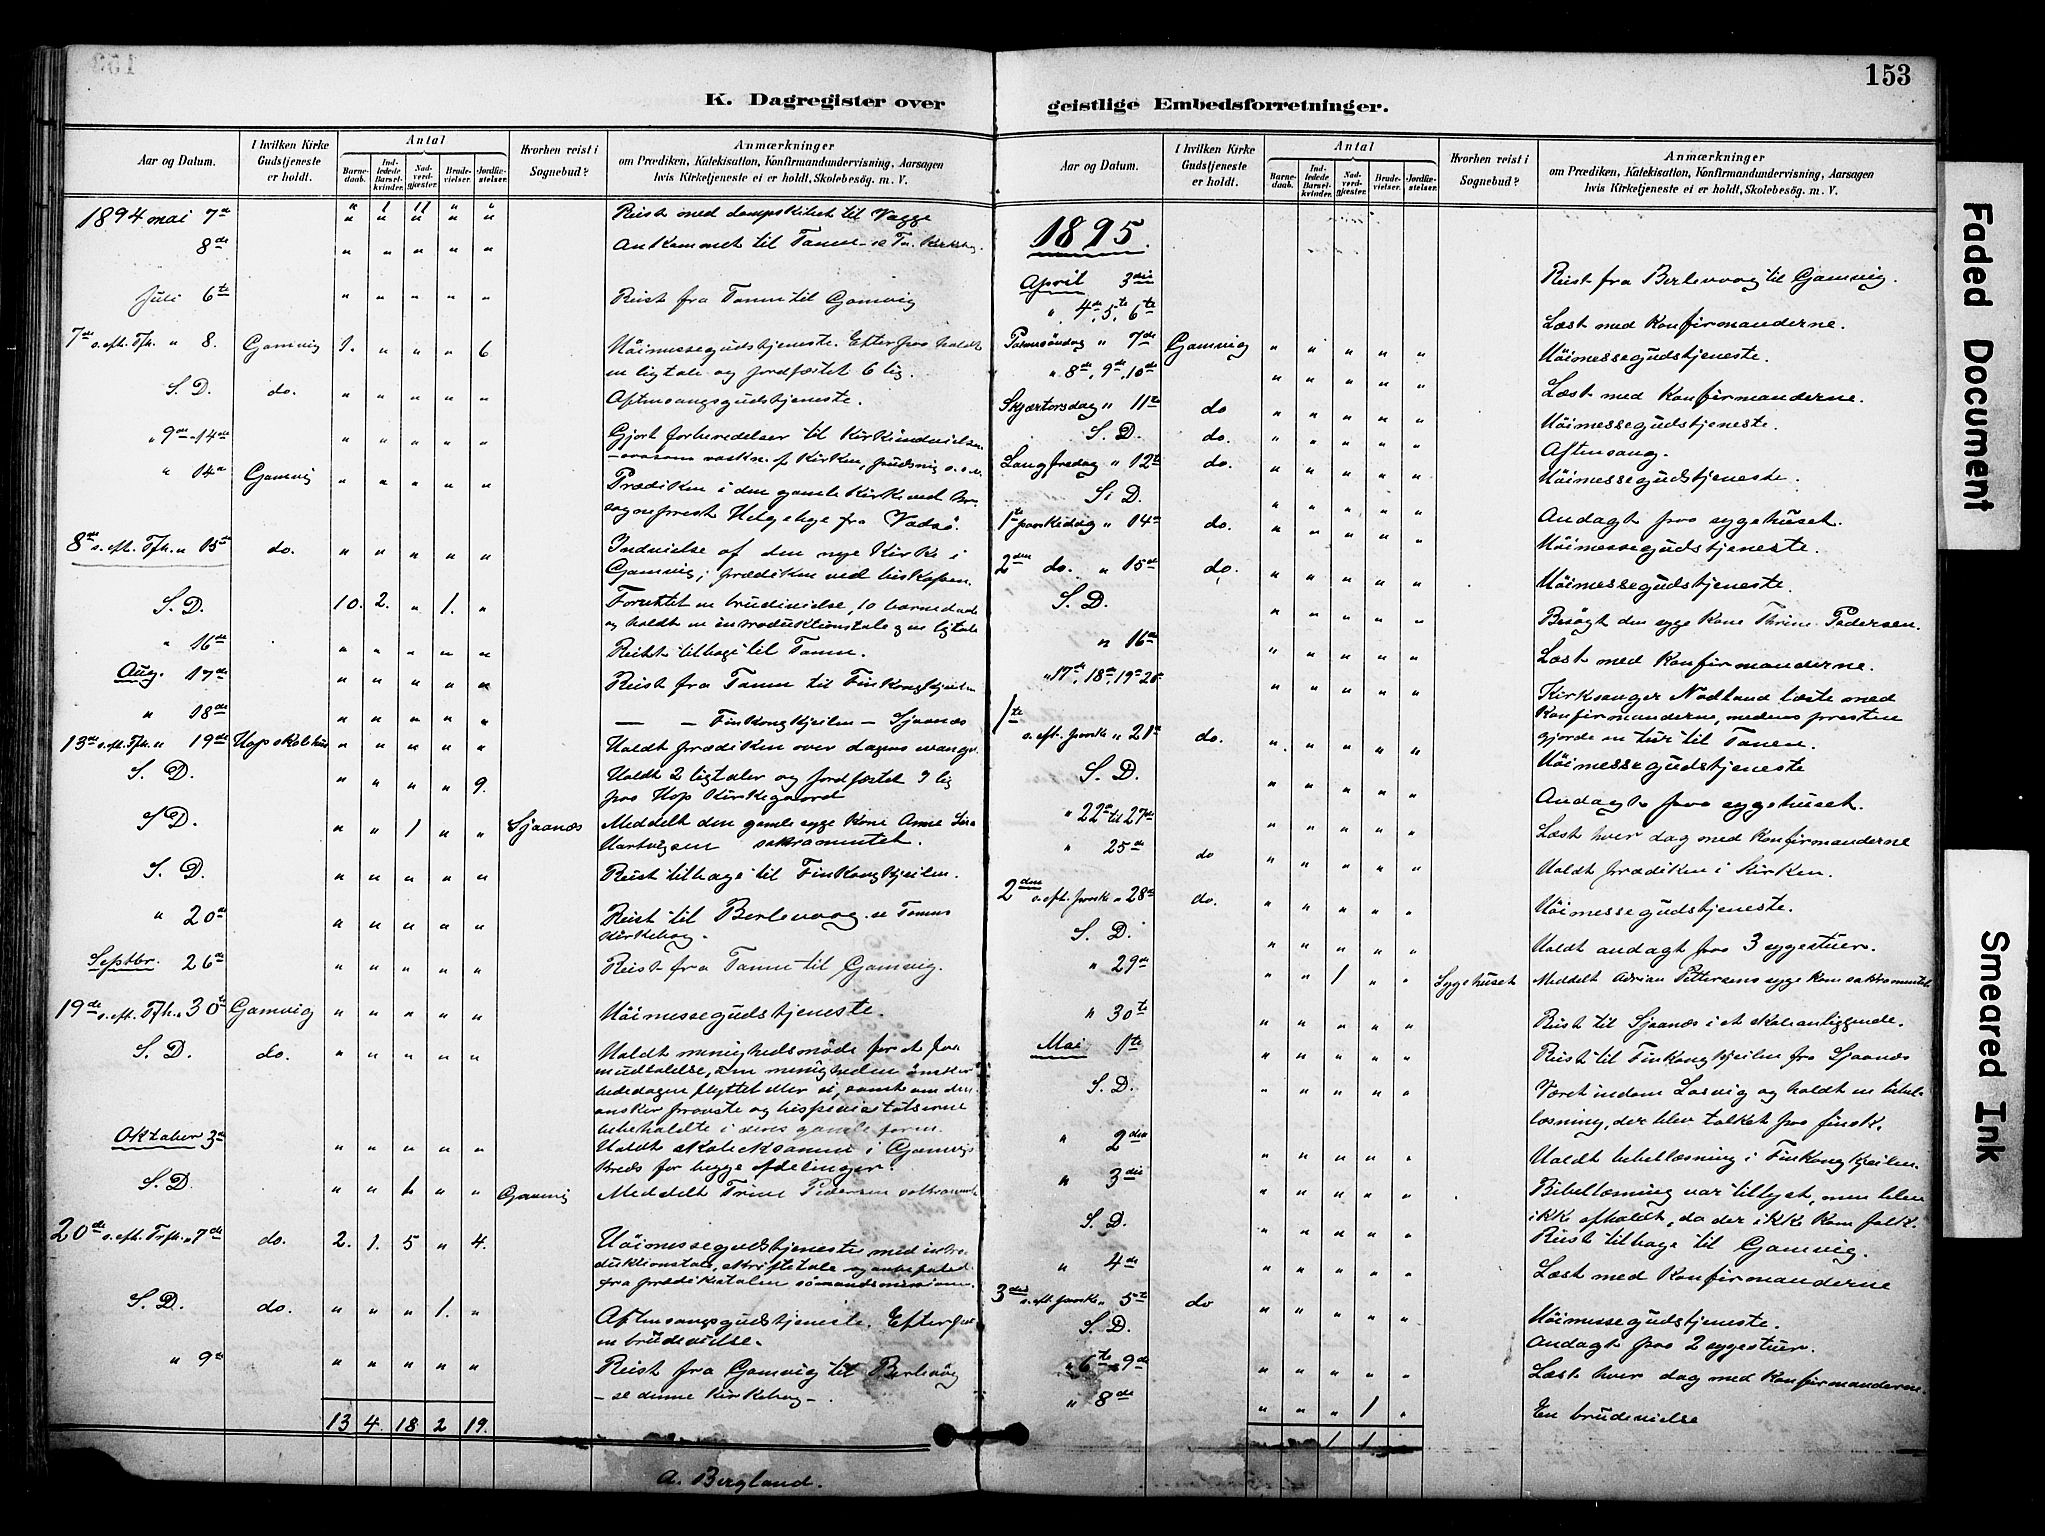 153
K. Dagregister over geistlige Embedsforretninger.
Aar og Datum. | I hvilken Kirke Gudstjeneste er holdt. | Antal | Barnedaab. | Indledede Barselkvinder. | Nadverdgjester. | Brudevielser. | Jordfæstelser. | Hvorhen reist i Sognebud? | Anmærkninger om Prædiken, Katekisation, Konfirmandundervisning, Aarsagen hvis Kirketjeneste ei er holdt, Skolebesøg. m. V.
1894 mai 7de " 1 11 " " Reist med dampskibet til Vagge
8de " " " " " Ankommet til Tanen - se Tn. Kirkebog.
Juli 6te " " " " " Reist fra Tanen til Gamvig
7de s. eft. Tfh. " 8. Gamvig 1. " " " 6 Høimessegudstjeneste. Efterpaa holdt
en ligtale og jordfæstet 6 lig.
S. D. do. " " " " " Aftensangsgudstjeneste.
" 9de-14de " " " " " Gjort forberedelser til Kirkeindvielsen
" 14de Gamvig " " " " " Prædiken i den gamle Kirke ved
sogneprest Helgeby fra Vadsø.
8de s. eft. Tfh. " 15de do. " " " " " Indvielse af den nye Kirke i
Gamvig; prædiken ved biskopen.
S. D. 10. 2. " 1. " Forrettet en brudevielse, 10 barnedaab
og holdt en introduktionstale og en ligtale
" 16de " " " " " Reist tilbage til Tanen.
Aug. 17de " " " " " Reist fra Tanen til Finkongkjeilen
" 18de " " " " " — - Finkongkjeilen - Sjaanæs
13de s. eft. Tfh. " 19de Hop skolehus " " " " " Holdt prædiken over dagens evange.
S. D. " " " " 9. Holdt 2 ligtaler og jordfæstet 9 lig
paa Hop Kirkegaard
S D. " " 1 " " Sjaanæs Meddelt den gamle syge Kone Anne
Hartvigsen sakramentet.
S. D. " " " " " Reist tilbage til Finkongkjeilen.
" 20de " " " " " Reist til Berlevaag se Tanens
Kirkebog.
Septbr. 26de " " " " " Reist fra Tanen til Gamvig.
19de s. eft. Tfh. " 30te Gamvig " " " " " Høimessegudstjeneste.
S. D. do. " " " " " Holdt menighedsmøde for at faa
en udtalelse, om menigheden ønsker
bededagen flyttet eller ei, samt om den
ønsker provste og bispevisitatserne
bibeholdte i deres gamle form.
Oktober 3die " " " " " Holdt skoleeksamen i Gamvig
Kreds for begge afdelinger.
S. D " " 1 " " Gamvig Meddelt Trine Pedersen sakramentet
20de s. eft. Trfh. " 7de do. 2. 1. 5 " 4. Høimessegudstjeneste med intro-
duktionstale, skriftetale og anbefaled
fra prædikestolen sømandsmissionen.
S. D. do. " " " 1. " Aftensangsgudstjeneste. Efterpaa
en brudevielse.
" 9de " " " " " Reist fra Gamvig til Berlevåg
- se denne kirkebog -.
13 4. 18 2 19.
A. Bergland.
Aar og Datum. | I hvilken Kirke Gudstjeneste er holdt. | Antal | Barnedaab. | Indledede Barselkvinder. | Nadverdgjester. | Brudevielser. | Jordfæstelser. | Hvorhen reist i Sognebud? | Anmærkninger om Prædiken, Katekisation, Konfirmandundervisning, Aarsagen hvis Kirketjeneste ei er holdt, Skolebesøg. m. V.
1895.
April 3die Reist fra Berlevaag til Gamvig.
" 4de, 5te, 6te Læst med Konfirmanderne.
Palmesøndag " 7de Gamvig " " " " " Høimessegudstjeneste.
" 8de, 9de, 10de " " " " " Læst med Konfirmanderne.
Skjærtorsdag " 11te do " " " " " Høimessegudstjeneste.
S. D. do. " " " " " Aftensang.
Langfredag " 12te do. " " " " " Høimessegudstjeneste.
S. D. " " " " " Andagt paa sygehuset.
1ste paaskedag " 14de do. " " " " " Høimessegudstjeneste.
2den do. " 15de do. " " " " " Høimessegudstjeneste.
S. D. " " " " " Besøgt den syge Kone Thrine Pedersen.
" 16de " " " " " Læst med Konfirmanderne.
" 17de, 18de, 19de 20de " " " " " Kirksanger Nodland læste med
Konfirmanderne, medens presten
gjorde en tur til Tanen.
1ste s. eft. paaske " 21de do. " " " " " Høimessegudstjeneste
S. D. " " " " " Andagt paa sygehuset.
" 22de til 27de " " " " " Læst hver dag med Konfirmanderne
" 25de do " " " " " Holdt prædiken i Kirken.
2den s. eft. paaske " 28de do. " " " " " Høimessegudstjeneste.
S. D. " " " " " Holdt andagt paa 3 sygestuer.
" 29de " " 1 " " Sygehuset Meddelt Adrian Pettersens syge kone sakramentet
" 30te " " " " " Reist til Sjaanæs i et skoleanliggende.
Mai 1ste " " " " " Reist til Finkongkjeilen fra Sjaanæs
S. D. " " " " " Været indom Losvig og holdt en bibel-
læsning, der blev tolket paa finsk.
" 2den " " " " " Holdt bibellæsning i Finkongkjeilen.
" 3die " " " " " Bibellæsning var tillyst, men blev
ikke afholdt, da der ikke kom folk.
S. D. " " " " " Reist tilbage til Gamvig.
" 4de " " " " " Læst med Konfirmanderne
3die s. eft. paaske " 5te do " " " " " Høimessegudstjeneste.
S. D. Andagt paa 2 sygestuer.
" 6te " 9de " " " " " Læst hver dag med Konfirmanderne.
" 8de " " " 1 " En brudevielse
1 1
Faded Document
Smeared Ink